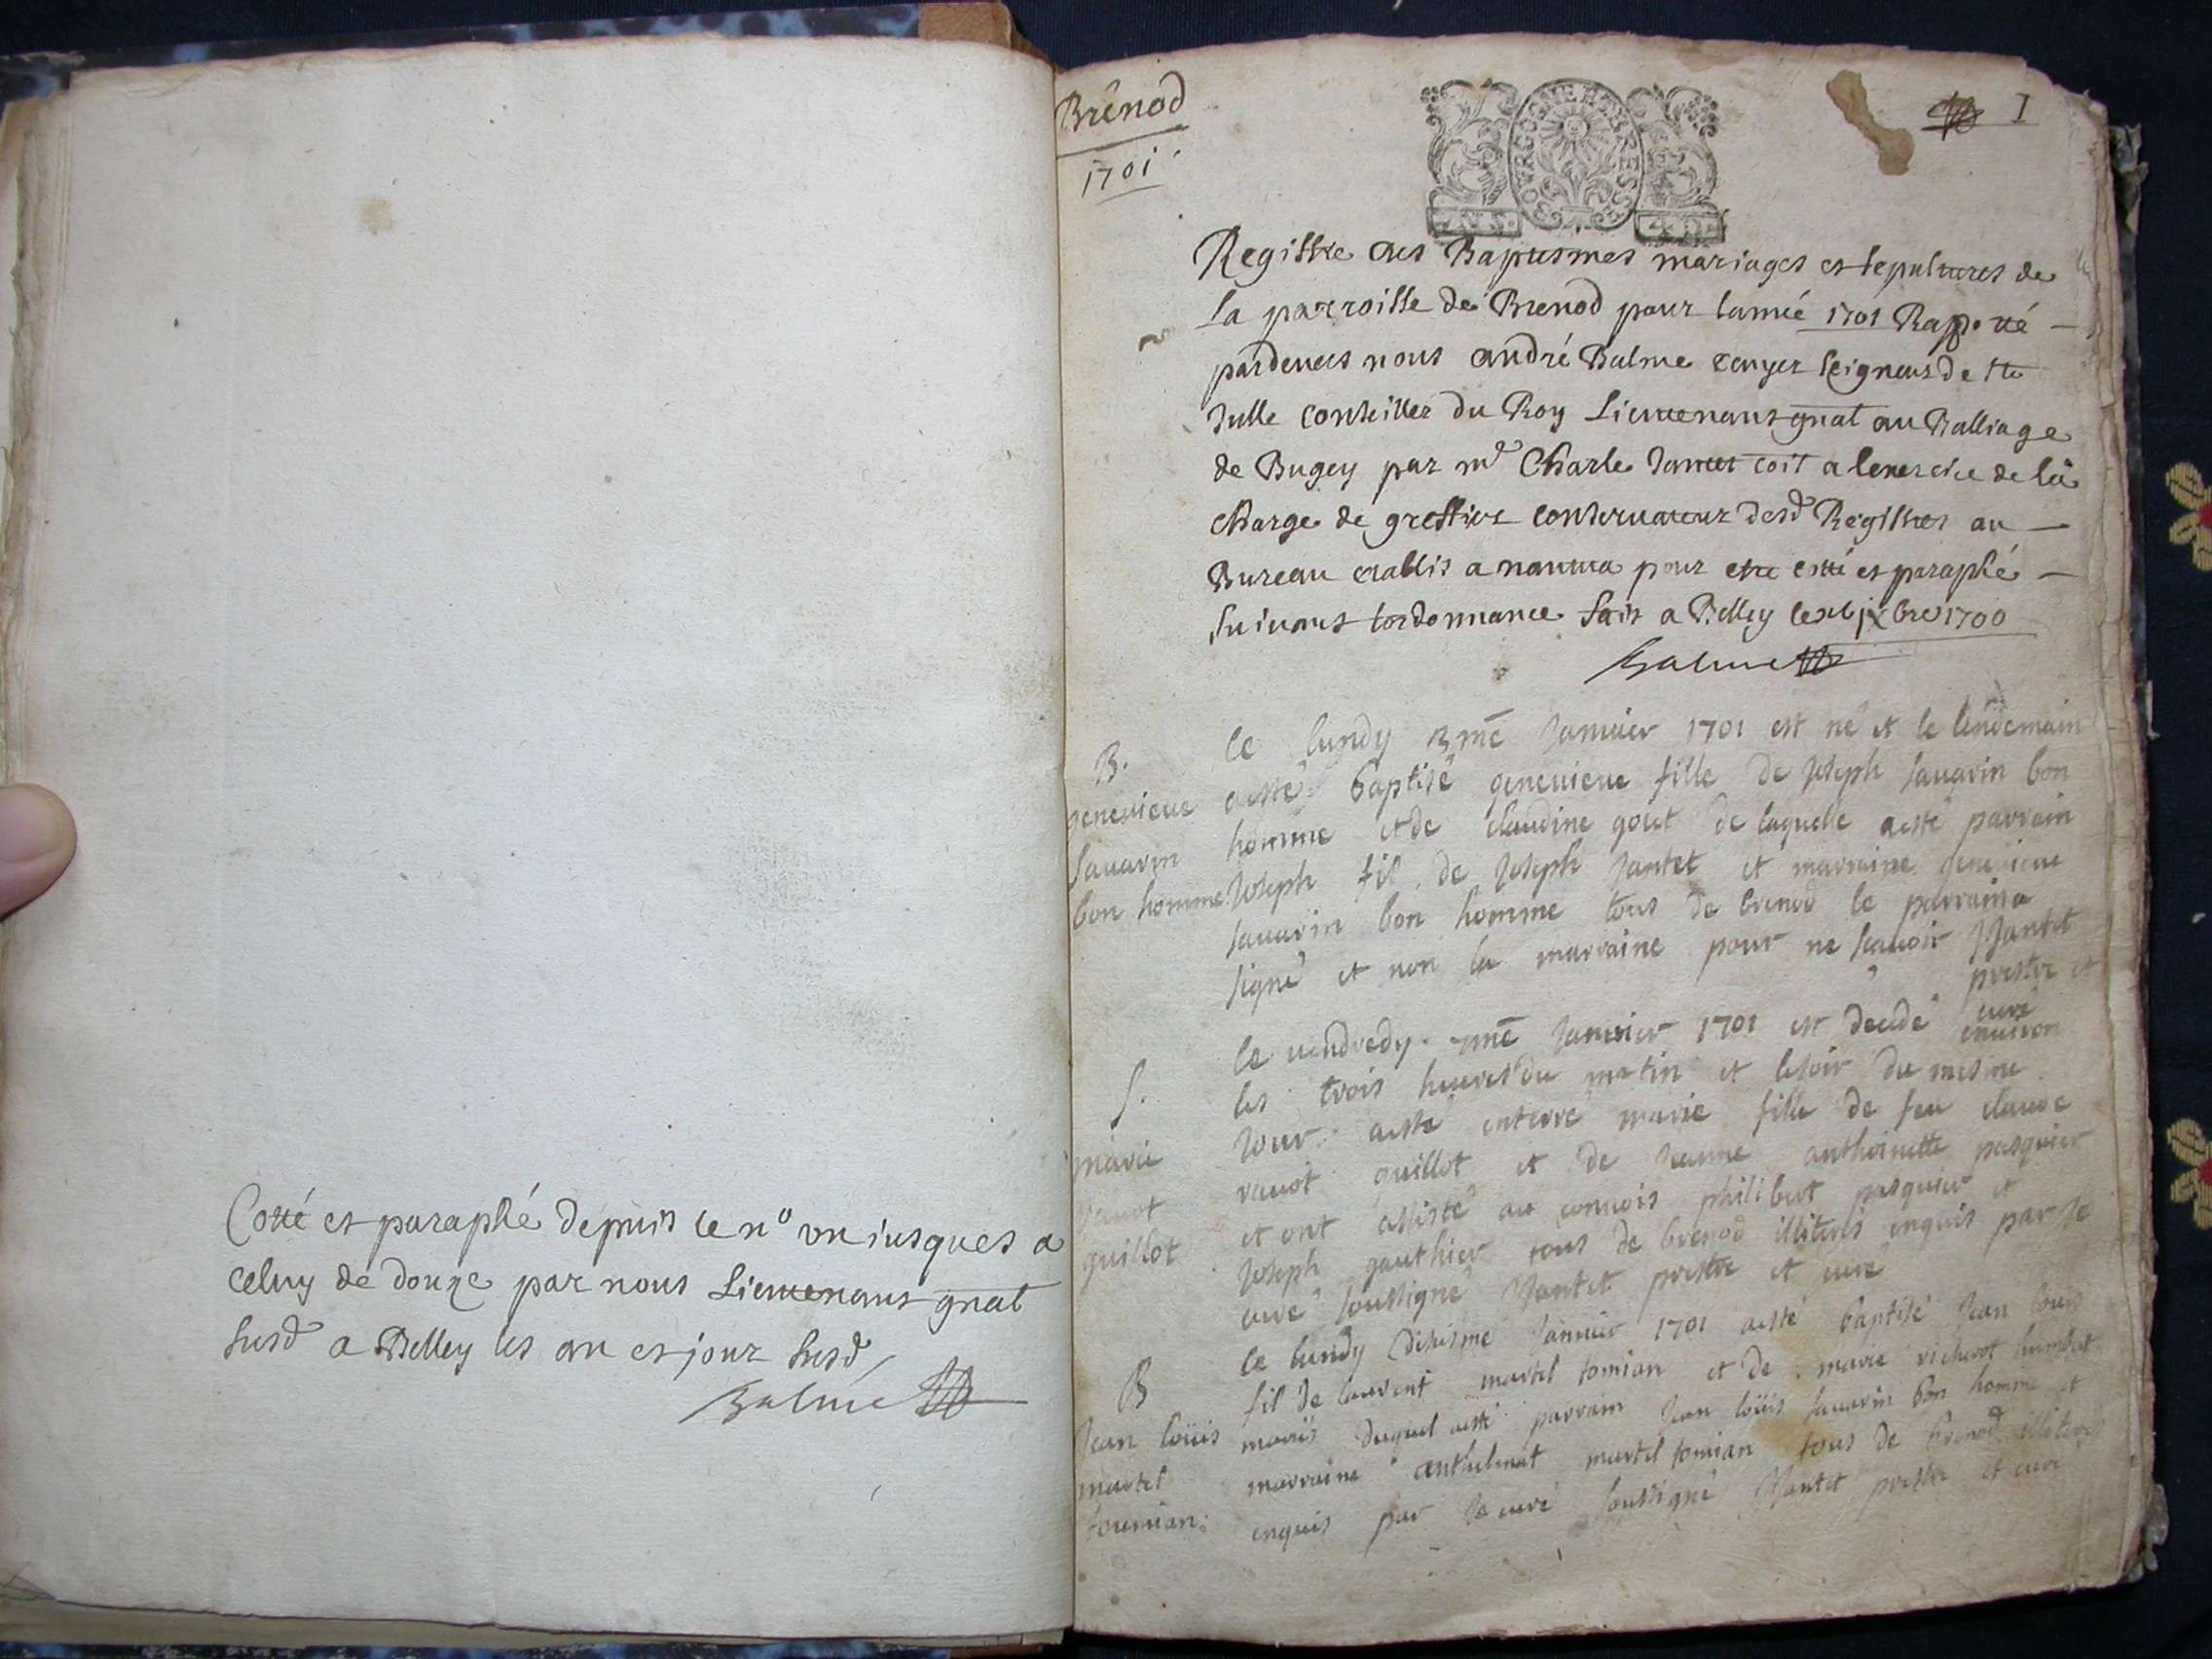 Cotté et paraphé depuis le n° un jusques a
celuy de douze par nous Lieutenant gnal
susd a Belley les an et jour susd
Balme
Brénod
1701
I
BOVRGOGNE BRESSE
Registre des Baptesmes mariages et sepultures de
la parroisse de Brenod pour lannée 1701 Rapporté
pardevers nous andré Balme escuyer seigneur de ste
Julle conseiller du Roy Lieutenant gnal au Balliage
de Bugey par me Charle Jantet coit a lexercice de la
charge de greffier conservateur desd Registres au
Bureau etablis a nantua pour etre cotté et paraphé
suivant lordonnance fait a Belley le xbre 1700
Balme
B.
genevieve
savarin
bon homme
le lundy 3me Janvier 1701 est né et le lendemain
aesté baptisé genevieve fille de Joseph savarin bon
homme et de claudine gouet de laquelle aesté parrain
Joseph fil de Joseph Jantet et marraine genevieve
savarin bon homme tous de brenod le parrain a
signé et non la marraine pour ne scavoir Jantet
prestre et
curé
S.
marie
ravot
guillot
le vendredy 7me Janvier 1701 est decedé environ
les trois heures du matin et le soir du mesme
Jour aesté enterré marie fille de feu claude
ravot guillot et de Jeanne anthoinette pasquier
et ont assisté au convois philibert pasquier et
Joseph gauthier tous de brenod illiterés enquis par Je
curé soussigné Jantet prestre et curé
B
Jean loüis
martel
tournian:
le lundy dixisme Janvier 1701 aesté baptisé Jean louis
fil de laurent martel tornian et de marie richerot humbert
mariés duquel aesté parrain Jean loüis savarin bon homme et
marraine anthelmat martel tornian tous de brenod illiterés
enquis par Je curé soussigné Jantet prestre et curé